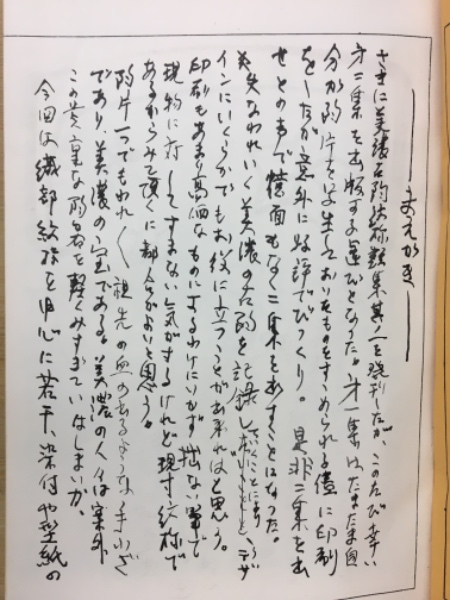 まえがき
さきに美濃古陶紋様類集其ノ一を発刊したが、このたび幸い
才二集を出版する運びとなった。才一集はたまたま自
分が陶片を写生しておいたものをすすめられる儘に印刷
をしたが意外に好評でびっくり。是非二集を出
せとの声で臆面もなく二集を出すことになった。
失なわれいく美濃の古陶を記録しておくことにより デザ
インにいくらかでもお役に立つことがあればと思う。
印刷もあまり高価なものにするわけにいかず拙ない筆で
現物に対してすまない気がするけれど現寸紋様で
あるからみて頂くに都合がよいと思う。
陶片一つでもわれ〱祖先の血の あるような手わざ
であり、美濃の宝である。美濃の人々は案外
この貴重な陶器を軽くみすぎていはしまいか。
今回は織部紋様を中心に若干染付や型紙の